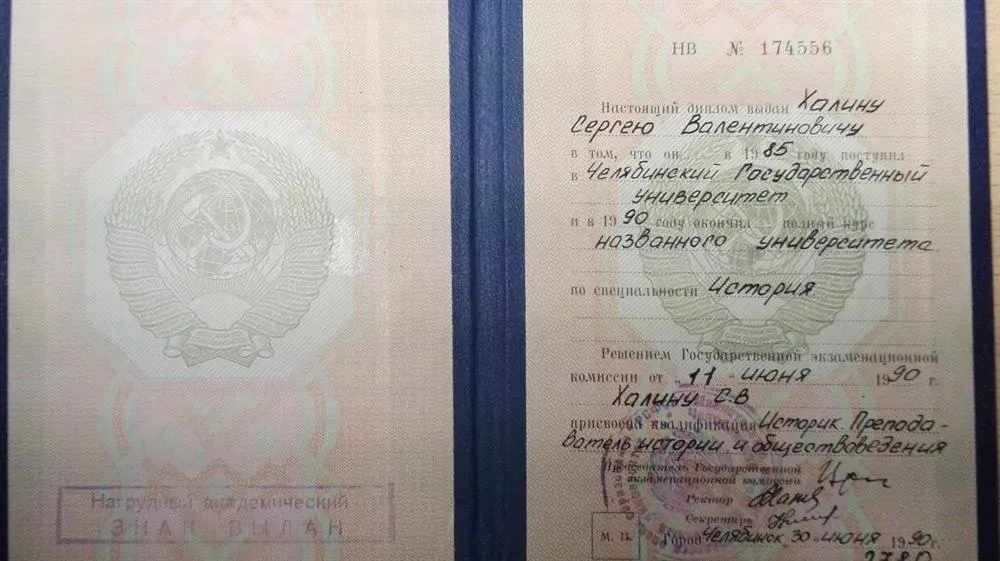 Нагрудный академический
ЗНАК ВЫДАН
НВ № 174556
Настоящий диплом выдан Халину
Сергею Валентиновичу
в том, что он в 1985 году поступил
в Челябинский Государственный
университет
и в 1990 году окончил полный курс
названного университета
по специальности История
Решением Государственной экзаменационной
комиссии от „11“ июня 1990 г.
Халину С.В
присвоена квалификация Историк. Препода-
ватель истории и обществоведения
Председатель Государственной
экзаменационной комиссии
Ректор
Секретарь
М. П. Город Челябинск 30 июня 1990 г.